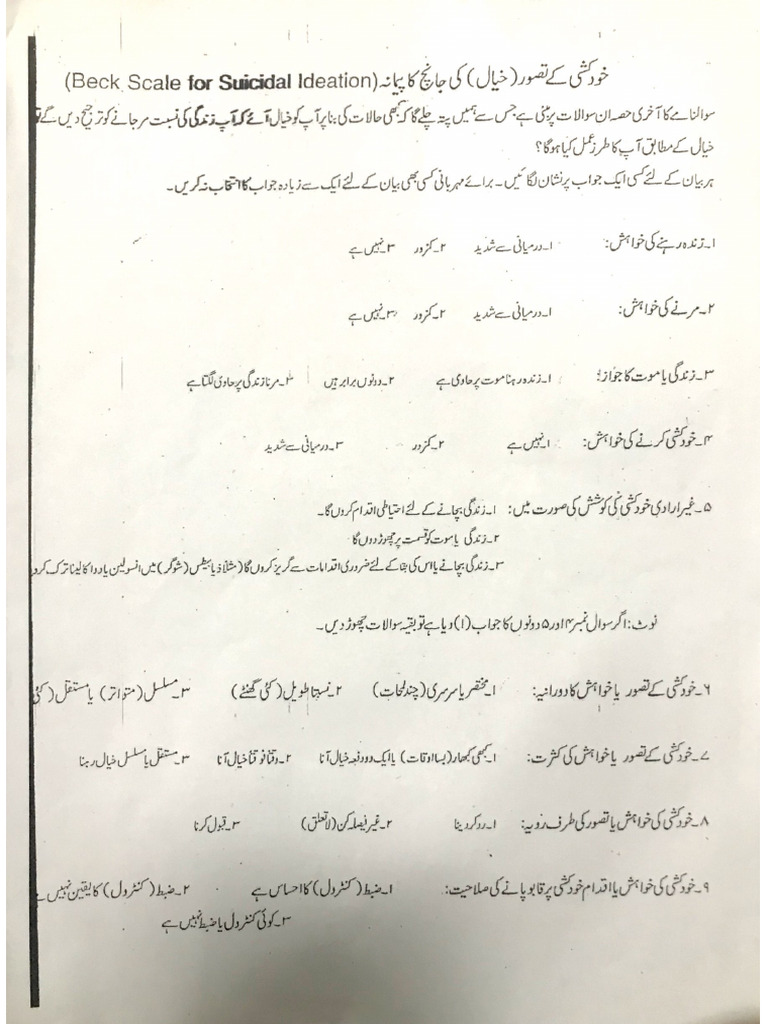 خودکشی کے تصور (خیال) کی جانچ کا پیمانہ (Beck Scale for Suicidal Ideation)
سوالنامے کا آخری حصہ ان سوالات پر مبنی ہے جس سے ہمیں پتہ چلے گا کہ کبھی حالات کی بنا پر آپ کو خیال آئے کہ آپ زندگی کی نسبت مر جانے کو ترجیح دیں گے تو
خیال کے مطابق آپ کا طرز عمل کیا ہوگا؟
ہر بیان کے لئے کسی ایک جواب پر نشان لگائیں۔ برائے مہربانی کسی بھی بیان کے لئے ایک سے زیادہ جواب کا انتخاب نہ کریں۔
۱۔ زندہ رہنے کی خواہش: ۱۔ درمیانی سے شدید ۲۔ کمزور ۳۔ نہیں ہے
۲۔ مرنے کی خواہش: ۱۔ درمیانی سے شدید ۲۔ کمزور ۳۔ نہیں ہے
۳۔ زندگی یا موت کا جواز: ۱۔ زندہ رہنا موت پر حاوی ہے ۲۔ دونوں برابر ہیں ۳۔ مرنا زندگی پر حاوی لگتا ہے
۴۔ خودکشی کرنے کی خواہش: ۱۔ نہیں ہے ۲۔ کمزور ۳۔ درمیانی سے شدید
۵۔ غیر ارادی خودکشی کی کوشش کی صورت میں: ۱۔ زندگی بچانے کے لئے احتیاطی اقدام کروں گا۔
۲۔ زندگی یا موت کو قسمت پر چھوڑ دوں گا
۳۔ زندگی بچانے یا اس کی بقا کے لئے ضروری اقدامات سے گریز کروں گا (مثلاً ذیابیطس (شوگر) میں انسولین یا دوا کا لینا ترک کرو
نوٹ: اگر سوال نمبر ۴ اور ۵ دونوں کا جواب (۱) دیا ہے تو بقیہ سوالات چھوڑ دیں۔
۶۔ خودکشی کے تصور یا خواہش کا دورانیہ: ۱۔ مختصر یا سرسری (چند لمحات) ۲۔ نسبتاً طویل (کئی گھنٹے) ۳۔ مسلسل (متواتر) یا مستقل (کئی
۷۔ خودکشی کے تصور یا خواہش کی کثرت: ۱۔ کبھی کبھار (بسا اوقات) یا ایک دو دفعہ خیال آنا ۲۔ وقتاً فوقتاً خیال آنا ۳۔ مستقل یا مسلسل خیال رہنا
۸۔ خودکشی کی خواہش یا تصور کی طرف رویہ: ۱۔ رد کر دینا ۲۔ غیر فیصلہ کن (لاتعلق) ۳۔ قبول کرنا
۹۔ خودکشی کی خواہش یا اقدام خودکشی پر قابو پانے کی صلاحیت: ۱۔ ضبط (کنٹرول) کا احساس ہے ۲۔ ضبط (کنٹرول) کا یقین نہیں ہے
۳۔ کوئی کنٹرول یا ضبط نہیں ہے